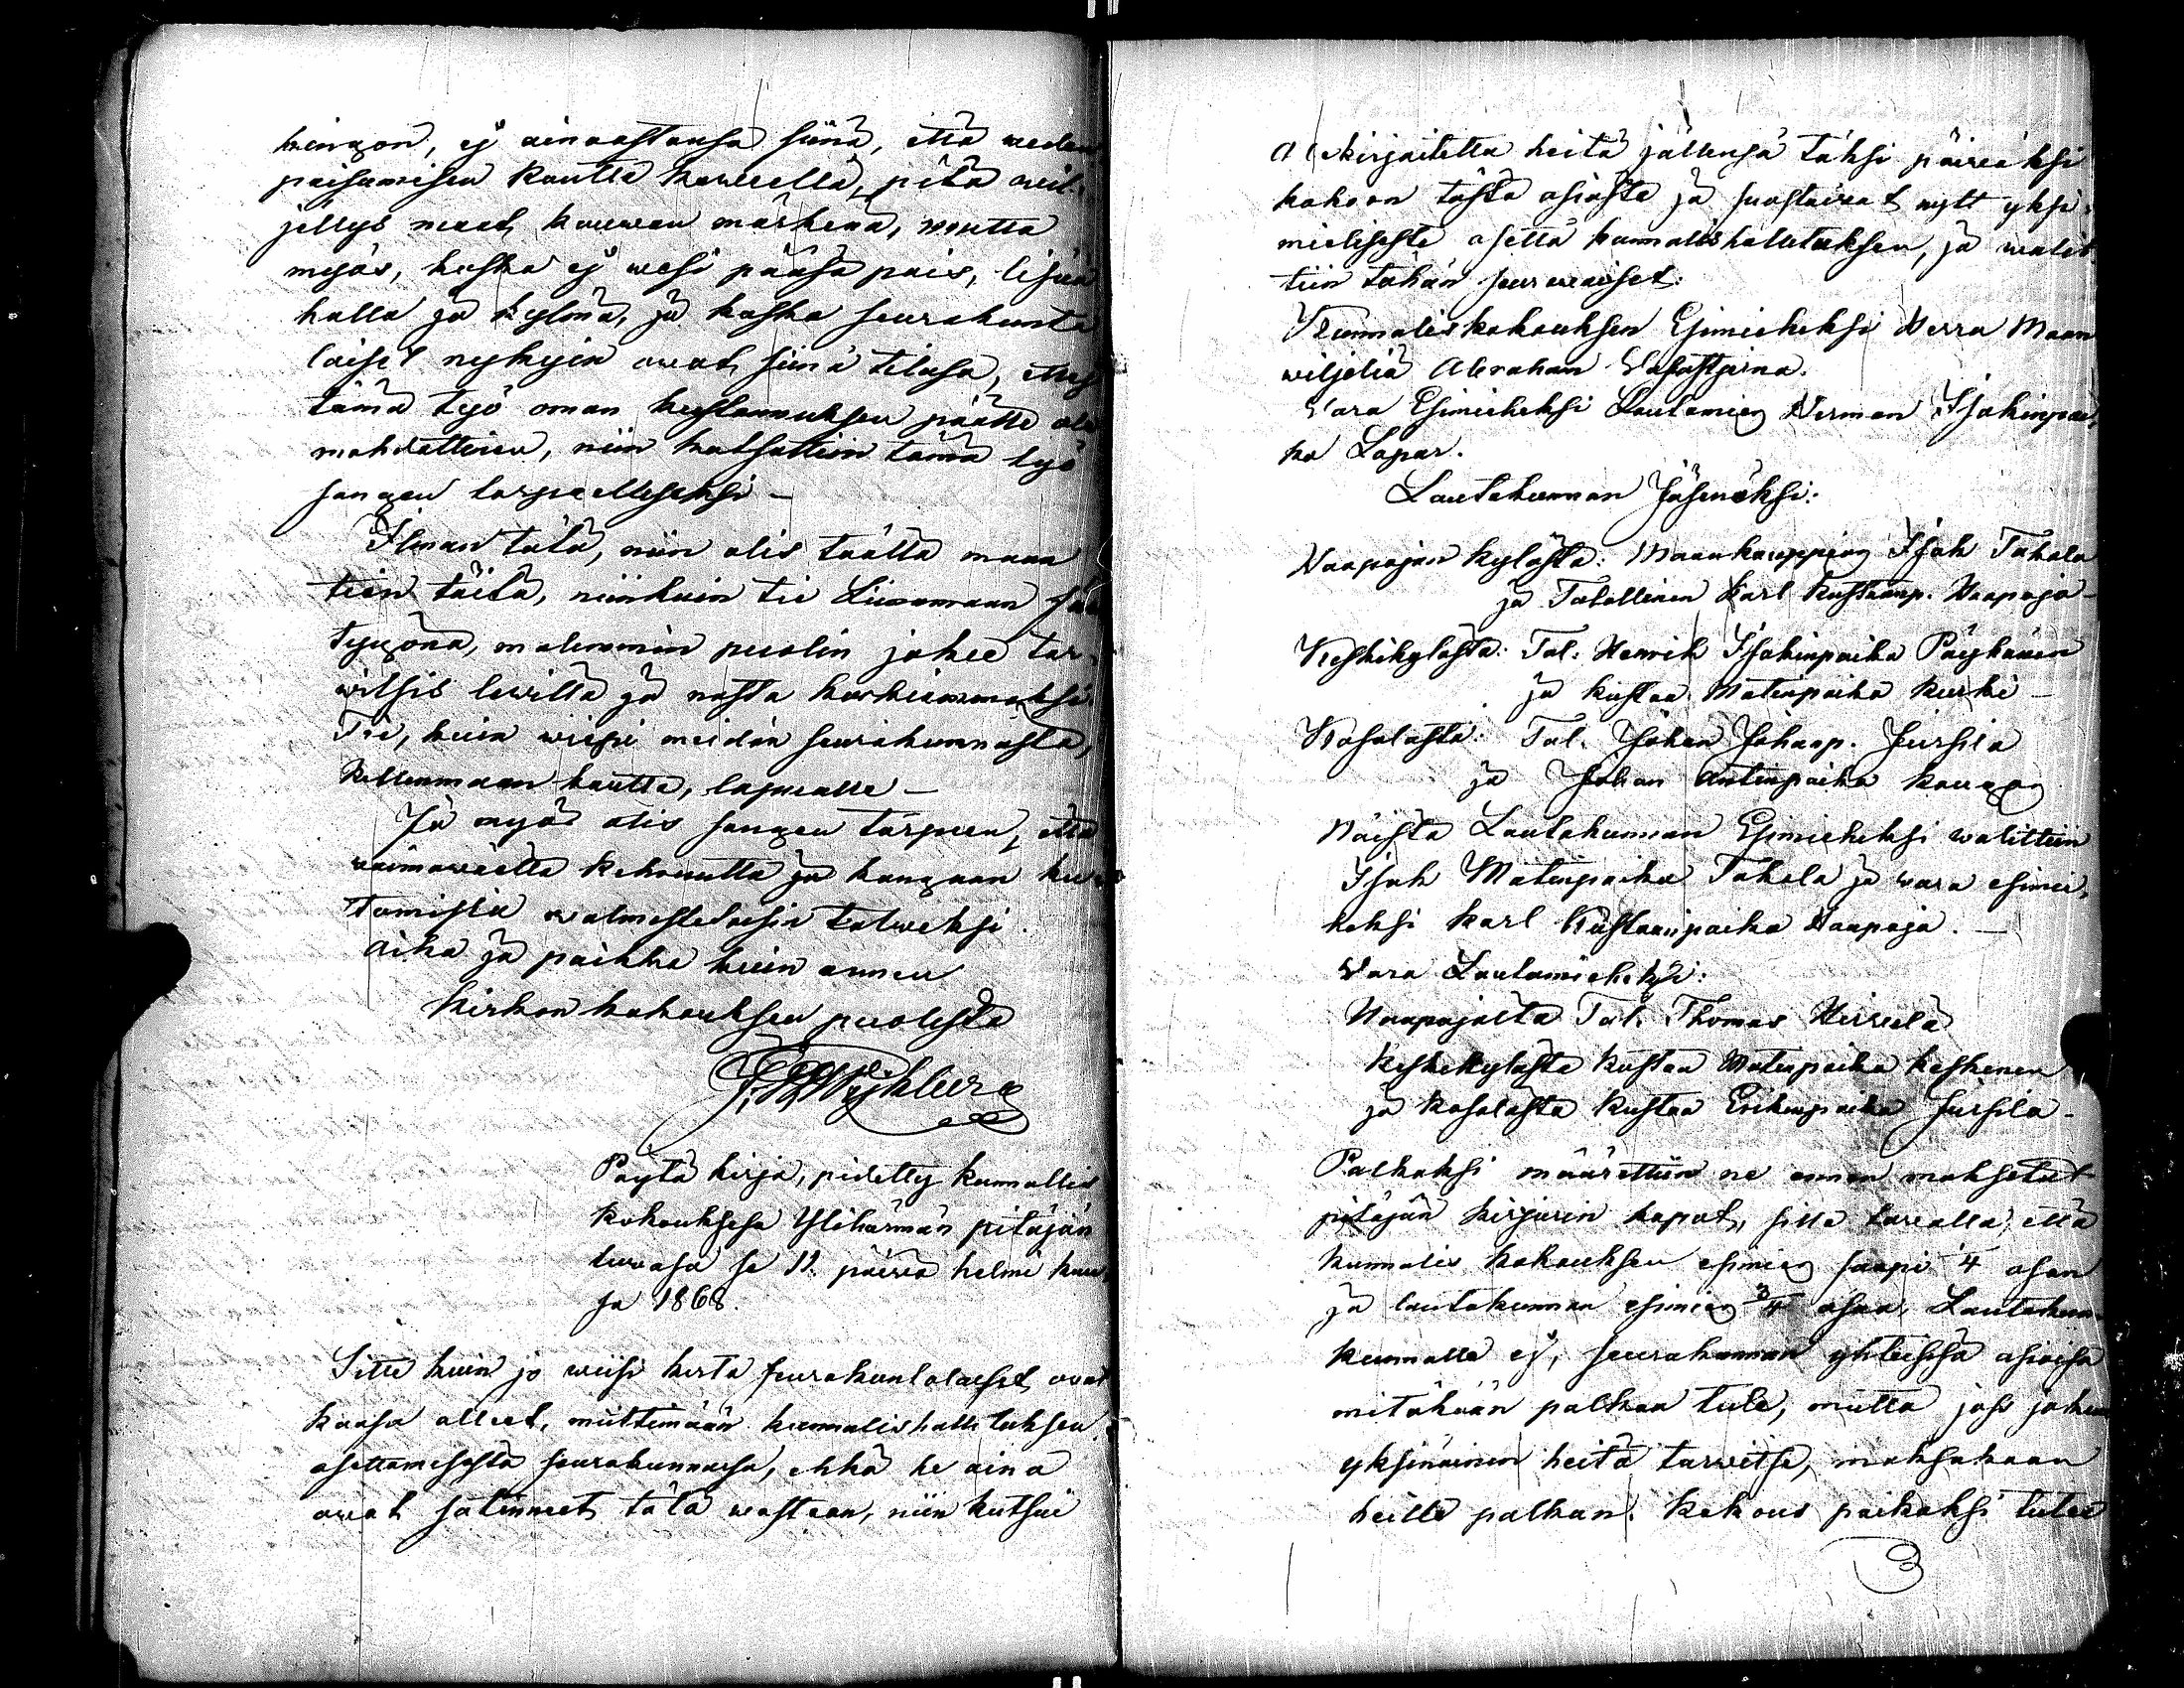 hingon, ej ainoastansa siinä, että weden
paisumisen kautta kewwellä, pitä wil-
jellys maat, kauwan märkenä, mutta
myös, koska ej wesi pääse pois, lisää
halla ja kylmä, ja koska seurakunta
laiset nykyin owat siinä tilasa, ettej
tämä työ oman kustannuksen päälle ole
mahdollinen, niin katsottiin tämä työ
sangen tarpeelliseksi –
Ilman tätä, niin olis täällä maan
tien töitä, niinkuin tie Liinamaan
molemmin puolin jokee tar-
witsis lewittä ja nosta korkiammaksi.
Tie, kuin wiepi meidän seurakunnasta,
kautta, lapualle –
Ja myös olis sangen tarpeen, että
waimowäellä kehruutta ja kangaan ku-
tomista walmistetaisin talweksi.
Aika ja paikka kuin ennen
Kirkon kokouksen puolesta
Pöytä kirja, pidetty kunnallis
kokouksesa Ylihärmän pitäjän
tuwasa se 11 päiwä helmi kuu-
sa 1868.
Sitte kuin jo wiisi kerta seurakuntalaiset owat
koosa olleet, miettimään kunnalishallituksen
asettamisesta seurakunnasa, ehkä he aina
owat satinneet tätä wastaan, niin kutsui
kirjoitettu heitä jällensä täksi päiwäksi
kokoon tästä asiasta ja suostuiwat nytt yksi-
mielisesti asetta kunnallishallituksen, ja walit-
tiin tähän seurawaiset:
Kunnaliskokouksen Esimieheksi Herra Maan
wiljeliä Abraham
Wara Esimieheksi Lautamies Herman Isakinpoi-
ka Lapar.
Lautakunnan Jäseneksi:
Haapojan kylästä: Maankauppias Isak Takala
ja Talollinen Karl Kustaanp. Haapoja –
Keskikylästä: Tal. Henrik Isakinpoika Pöyhönen
ja Kustaa Matinpoika Kurki –
Kosolasta: Tal. Johan Johanp. Jussila
ja Johan Antinpoika
Näistä Lautakunnan Esimieheksi walittiin
Isak Matinpoika Takala ja wara esimie-
heksi Karl Kustaanpoika Haapoja. –
Wara Lautamieheksi:
Haapojalta Tal. Thomas Hirwelä
Keskikylästä Kustaa Matinpoika Keskinen
ja Kosolasta Kustaa Erikinpoika Jussila –
Palkaksi määrettiin ne ennen maksetut
pitäjän kirjurin kapat, sillä tawalla, että
kunnalis kokouksen esimies saapi ¼ osan
ja lautakunnan esimies ¾ osaa. Lautakun-
kunnalle ej, seurakunnan yhteisisä asioisa
mitäkään palkaa tule, mutta joss jokin
yksinäinen heitä tarwitse, maksakaan
heille palkan. Kokous paikaksi tulee